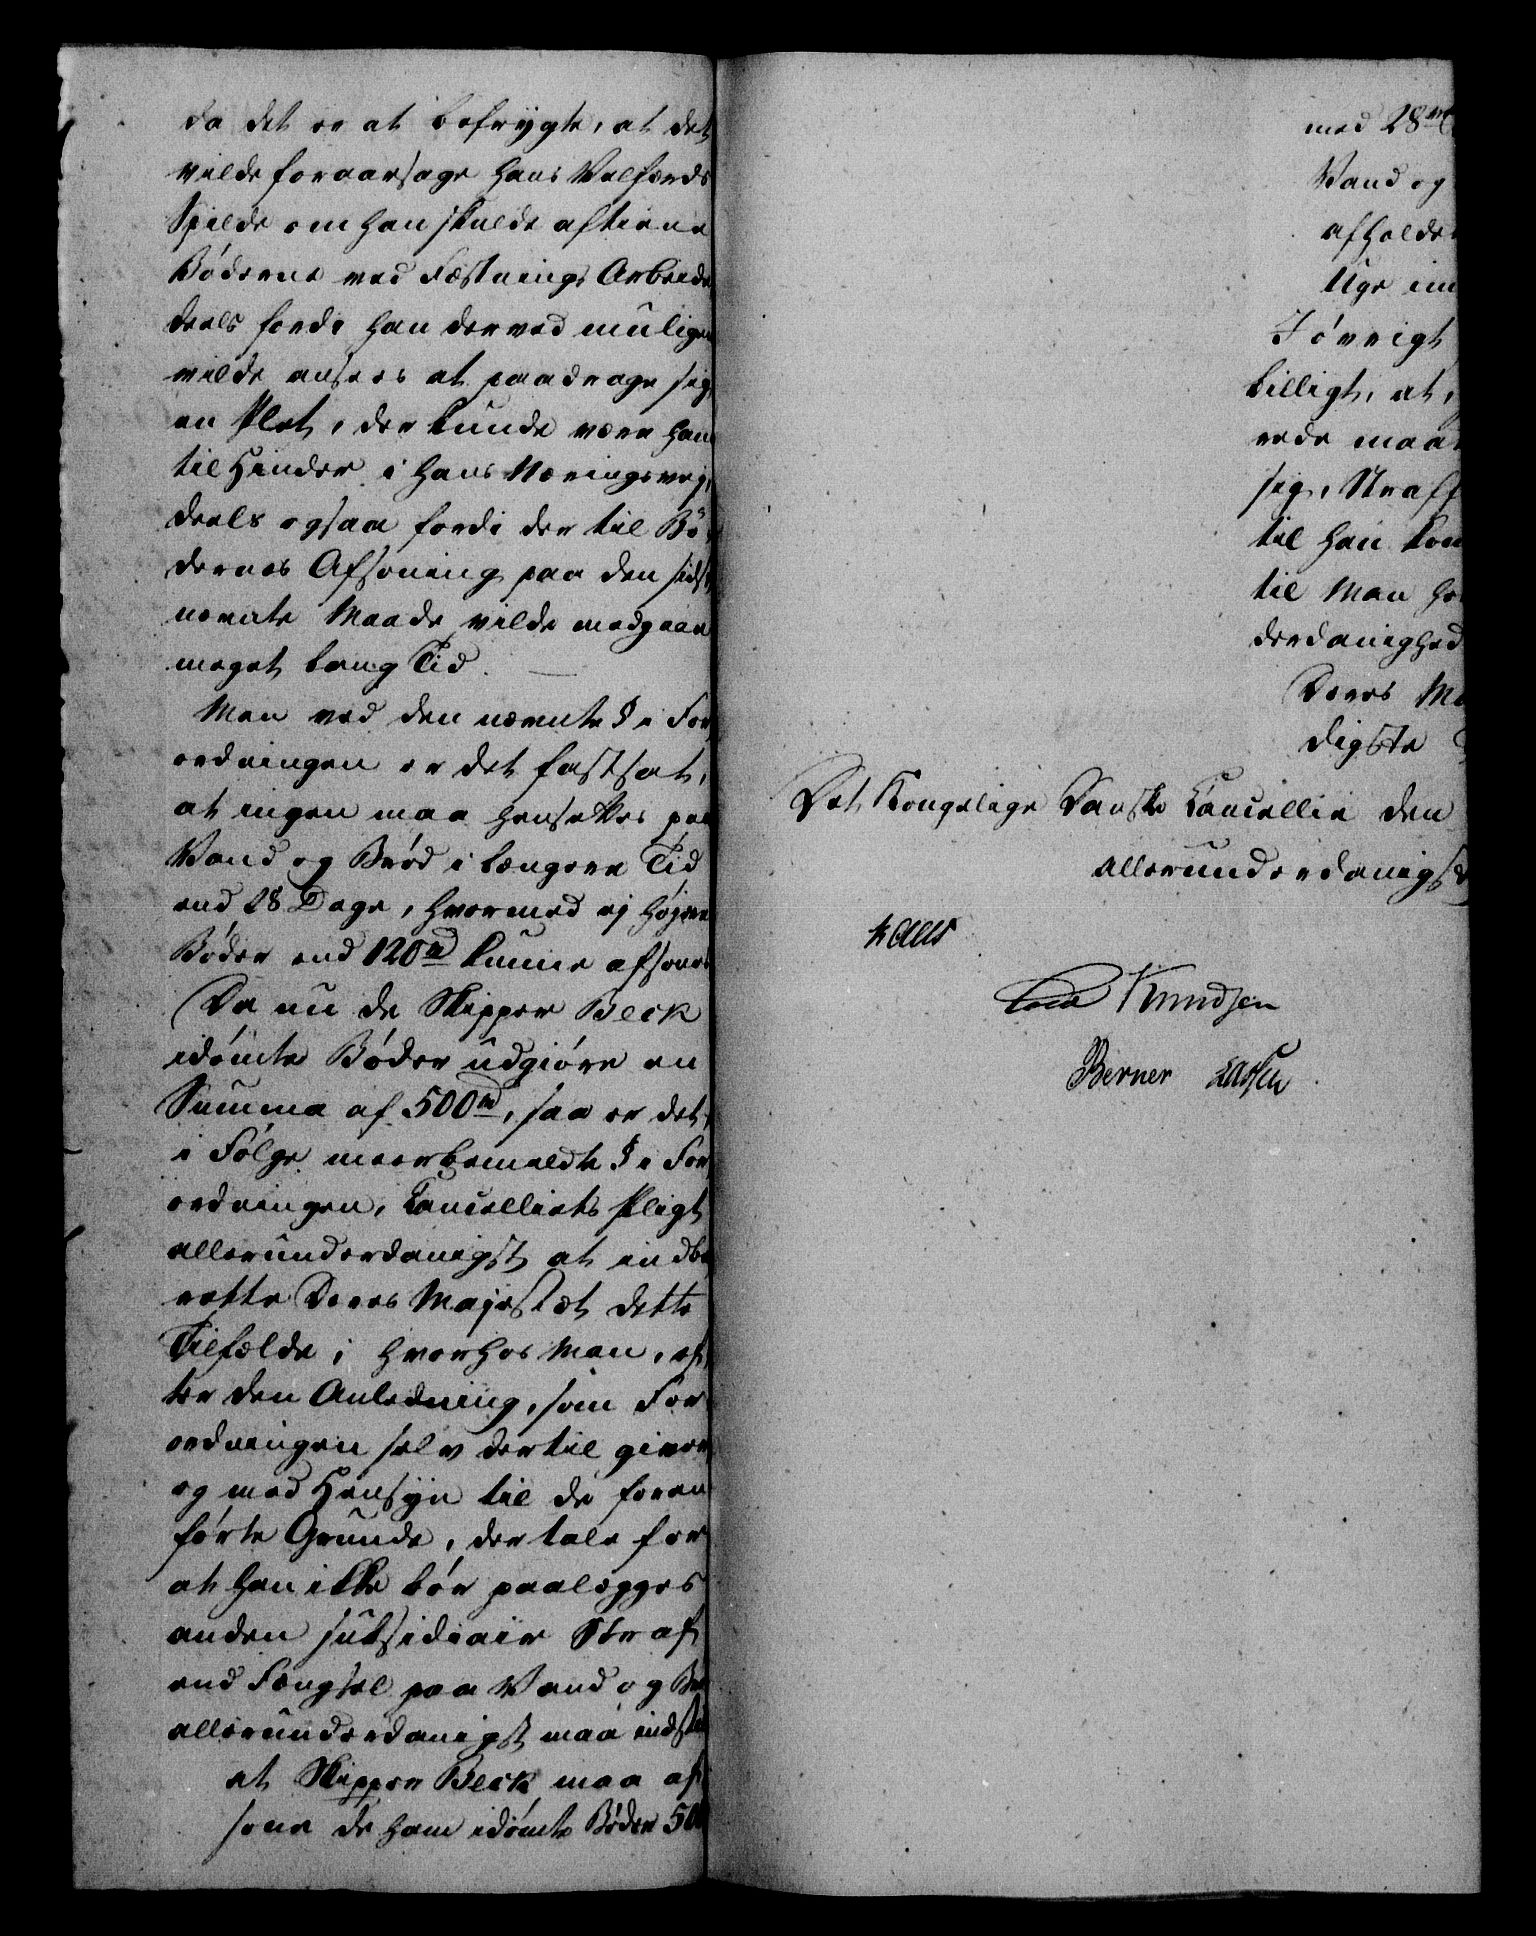 da det er at befrygte, at det
vilde foraarsage hans Velfærds
Spilde om han skulde aftiene
Böderne ved Fæstnings Arbeide
deels fordi han derved muligen
vilde ansees at paadrage sig
en Plet, der kunde være ham
til Hinder i hans Næringsvej,
deels ogsaa fordi der til Bö-
dernes Afsoning paa den sidst
nævnte Maade vilde medgaae
meget lang Tid.
Men ved den nævnte § i For
ordningen er det fastsat,
at ingen maa hensættes paa
Vand og Bröd i længere Tid
end 28 Dage, hvormed ej höjere
Böder end 120 rd kunne afsones
Da nu de Skipper Beck
idömte Böder udgiöre en
Summa af 500 rd, saa er det,
i Fölge meerbemeldte § i For
ordningen, Cancelliets Pligt
allerunderdanigst at indbe
rette Deres Majestæt dette
Tilfælde; hvorhos Man, ef
ter den Anledning, som For
ordningen selv dertil giver
og med Hensyn til de foran
förte Grunde, der tale for
at han ikke bör paalægges
anden subsidiair Straf
end Fængsel paa Vand og Brö
allerunderdanigst maa indstil
at Skipper Beck maa af
sone de ham idömte Böder 500
med 28
Vand og
afholde
Uge im
Jövrigt
billigt, at,
rede maat
sig, Straff
til han kom
til Man he
derdanighed
Deres Ma
digste
Det Kongelige Danske Cancellie den
allerunderdanigst
Kaas
Knudsen
Berner Lassen